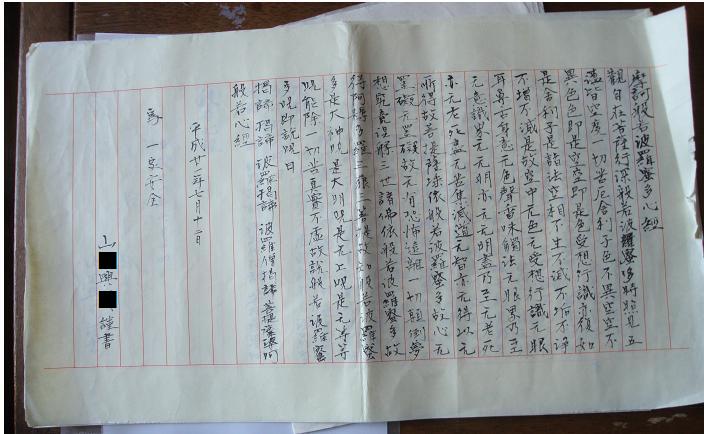 摩訶般若波羅蜜多心經
觀自在菩薩行深般若波羅蜜多時照見五
蘊皆空度一切苦厄舍利子色不異空空不
異色色即是空空即是色受想行識亦復如
是舍利子是諸法空相不生不滅不垢不浄
不増不減是故空中无色无受想行識无眼
耳鼻舌身意无色聲香味觸法无眼界乃至
无意識界无无明亦无无明盡乃至无老死
亦无老死盡无苦集滅道无智亦无得以无
所得故菩提薩埵依般若波羅蜜多故心无
罣礙无罣礙故无有恐怖遠離一切顛倒夢
想究竟涅槃三世諸佛依般若波羅蜜多故
得阿耨多羅三藐三菩提故知般若波羅蜜
多是大神呪是大明呪是无上呪是无等等
呪能除一切苦真實不虚故説般若波羅蜜
多呪即説呪曰
揭諦揭諦 波羅揭諦 波羅僧揭諦 菩提薩婆呵
般若心經
平成廿一年七月十二日
為 一家安全
山 興 謹書